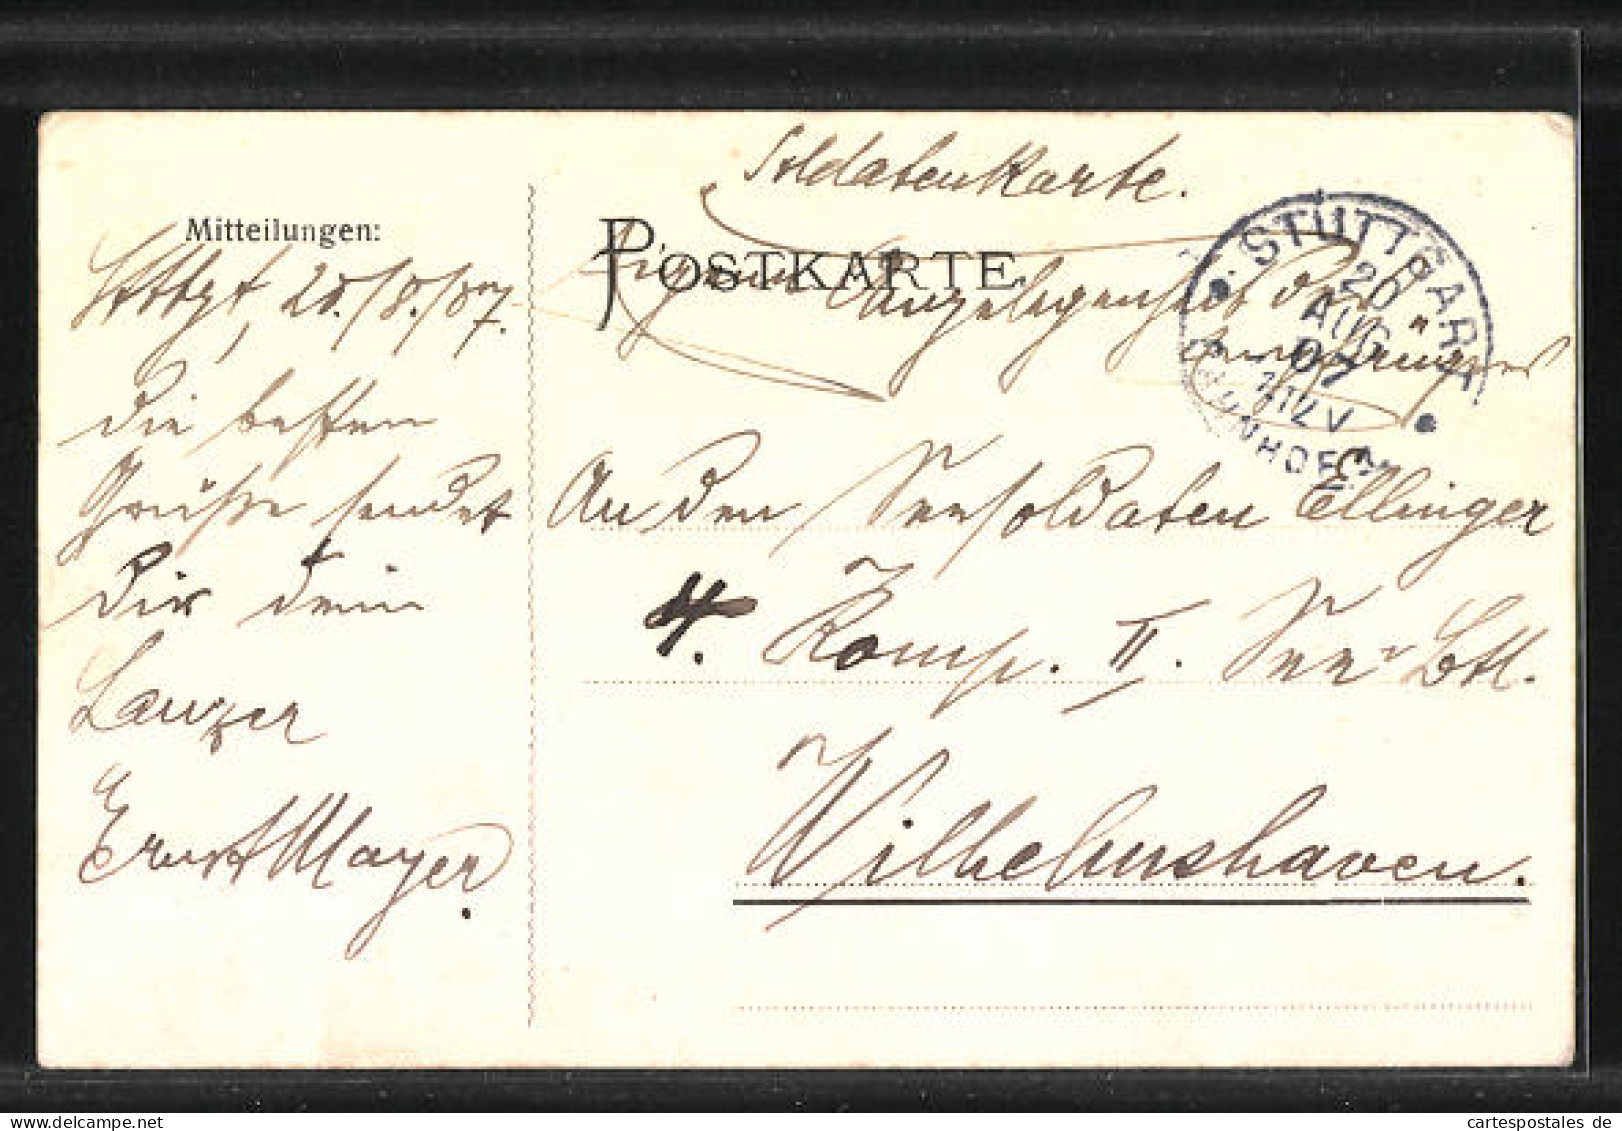 Soldatenkarte.
Mitteilungen:
POSTKARTE
Eigene Angelegenheit des
Empfängers
STUTTGART
20
AUG
07
BAHNHOF
Stuttgt, 20./8./07.
die besten
Grüße sendet
Dir dein
Ernst Mayer.
An den Seesoldaten Ellinger
4. Komp. II. See-Btl.
Wilhelmshaven.
cartespostales de